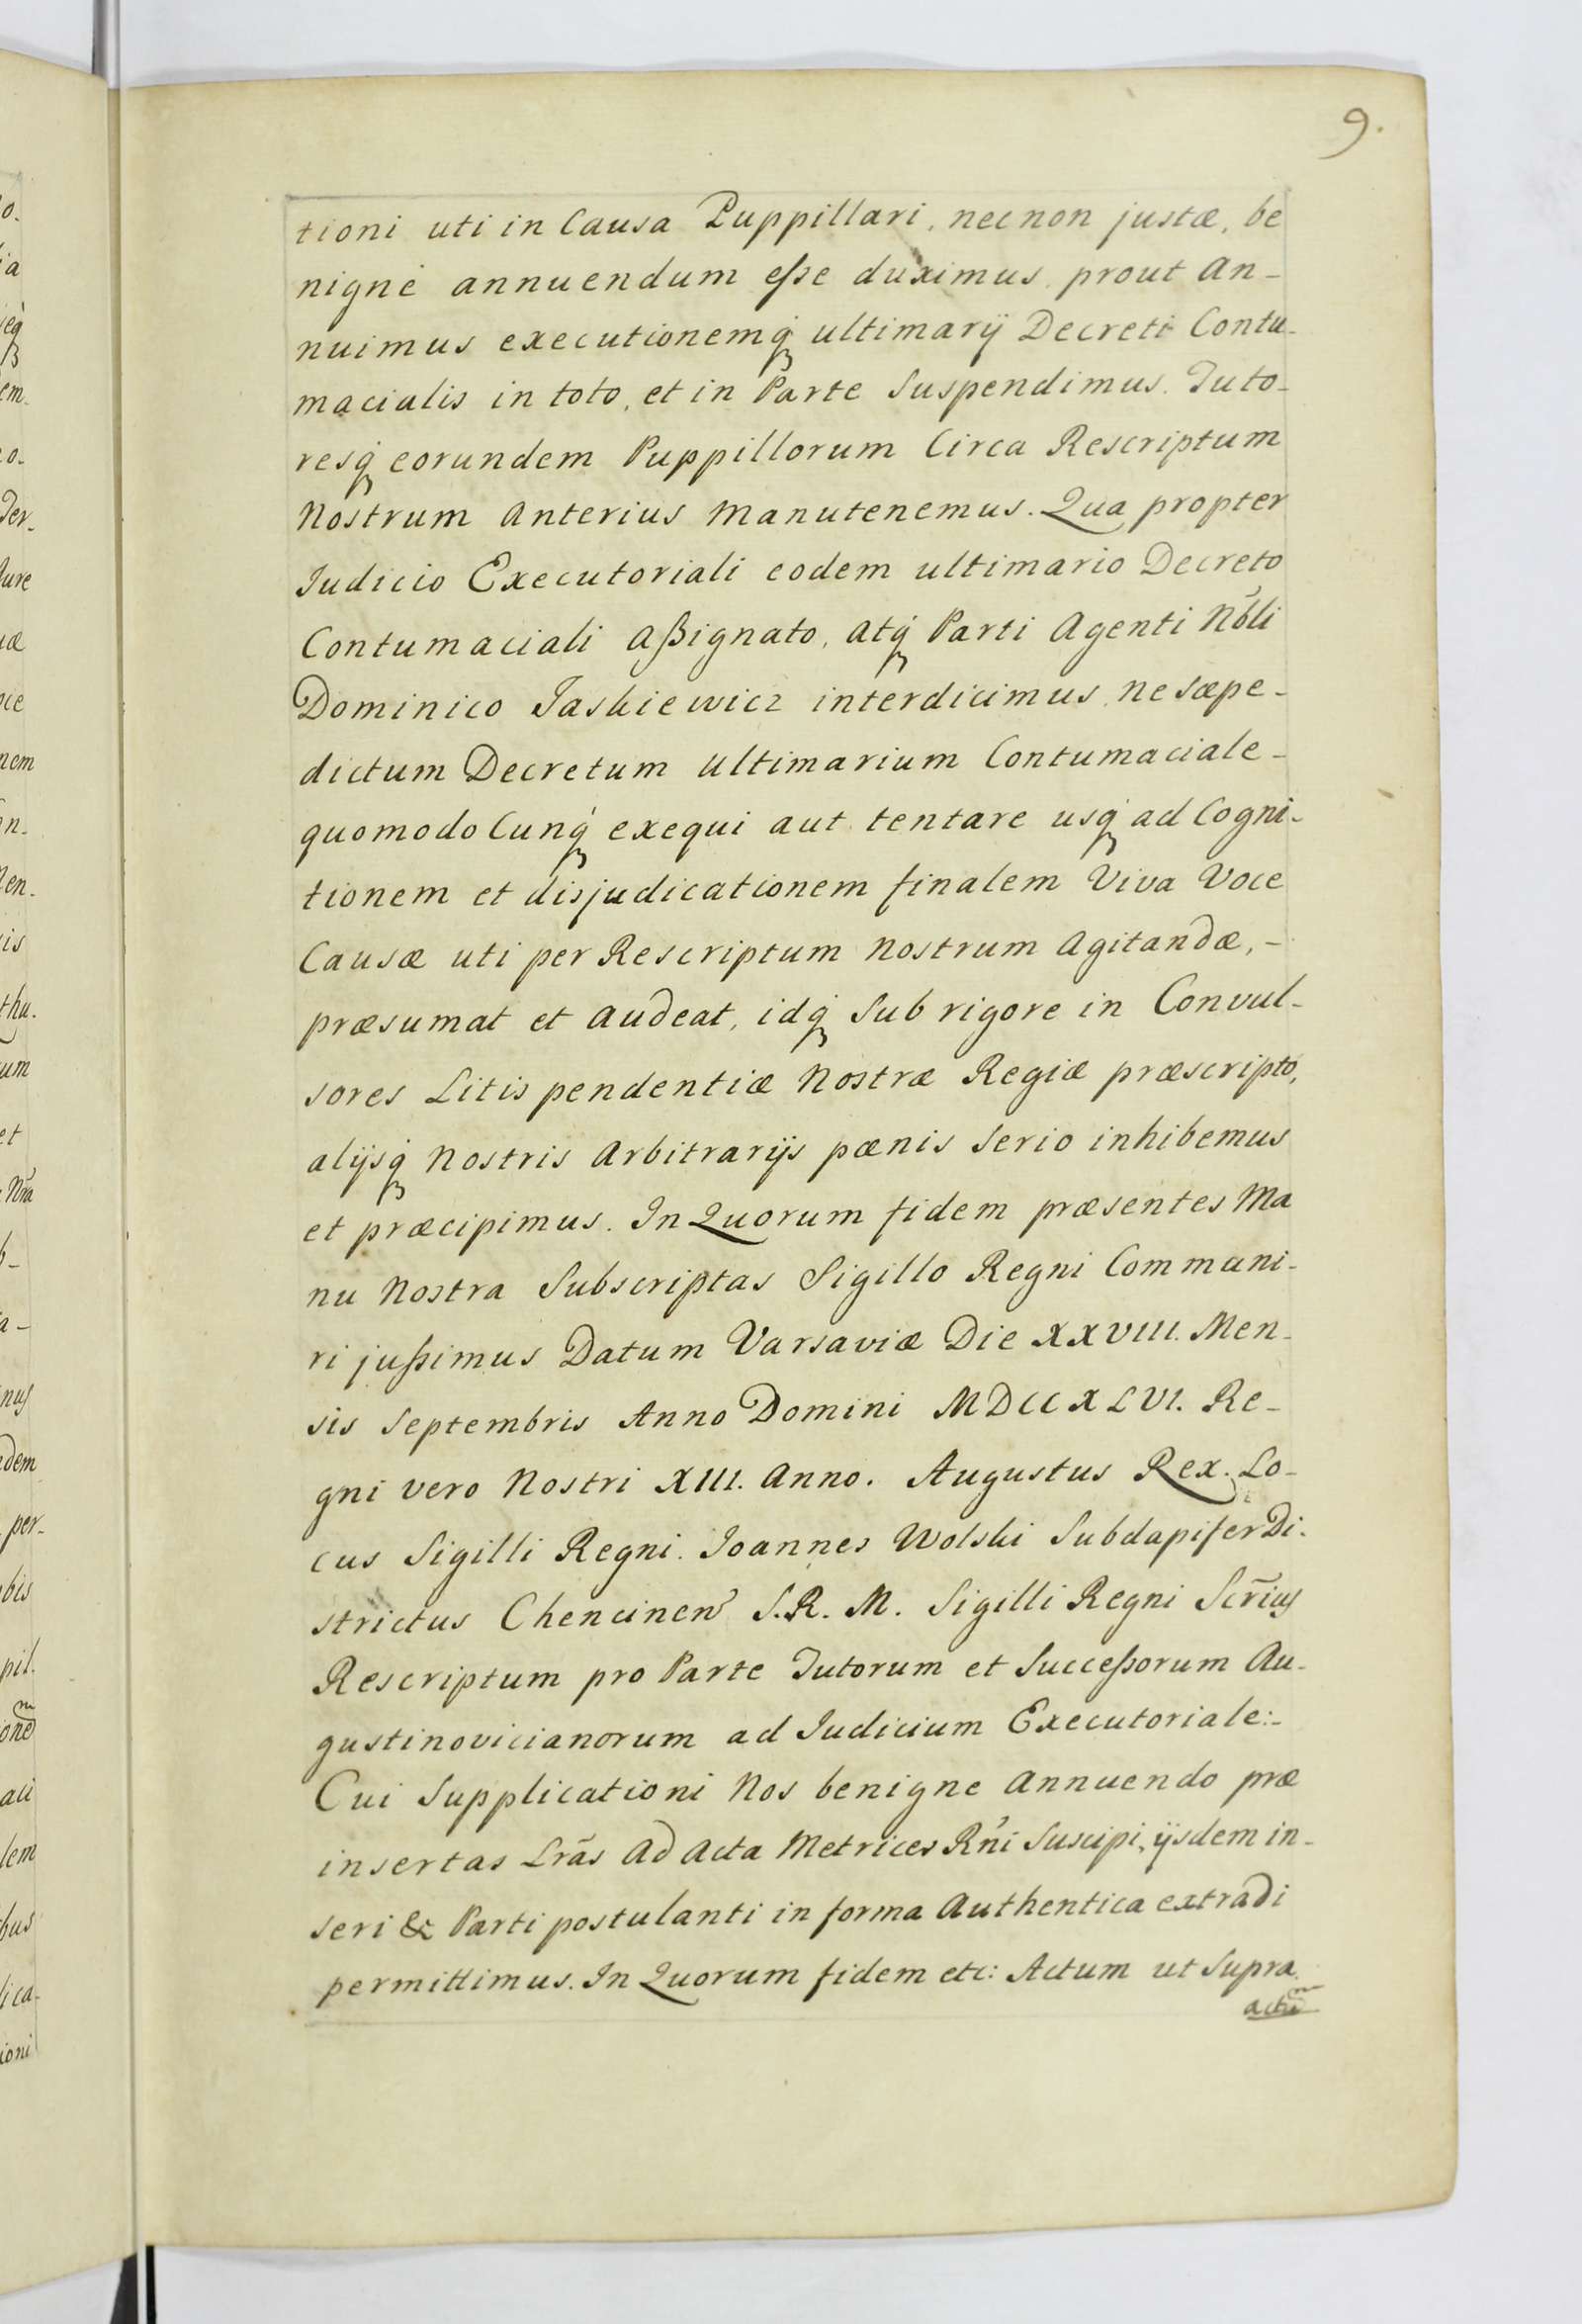 9.
tioni uti in Causa Puppillari, nec non justæ, be
nigne annuendum esse duximus, prout An-
nuimus executionemq́ꝫ ultimarij Decreti Contu-
macialis in toto, et in Parte Suspendimus. Tuto-
resq́ꝫ eorundem Puppillorum Circa Rescriptum
Nostrum Anterius Manutenemus. Qua propter
Iudicio Executoriali eodem ultimario Decreto
Contumaciali Aßignato, atq́ꝫ Parti Agenti Nobli
Dominico Jaskiewicz interdicimus, ne sæpe-
dictum Decretum Ultimarium Contumaciale-
quomodo Cunq́ꝫ exequi aut tentare usq́ꝫ ad Cogni-
tionem et disjudicationem finalem Viva Voce
Causæ uti per Rescriptum Nostrum Agitandæ,-
præsumat et Audeat, idq́ꝫ Sub rigore in Convul-
sores Litis pendentiæ Nostræ Regiæ præscripto,
alijsq́ꝫ Nostris Arbitrarijs pœnis Serio inhibemus
et præcipimus. In Quorum fidem præsentes Ma
nu Nostra Subscriptas Sigillo Regni Communi-
ri jußimus Datum Varsaviæ Die XXVIII. Men-
sis Septembris Anno Domini MDCCXLVI. Re-
gni vero Nostri XIII. Anno. Augustus Rex. Lo-
cus Sigilli Regni. Joannes Wolski Subdapifer Di-
strictus Chencinen S.R.M. Sigilli Regni Scr̃ius
Rescriptum pro Parte Tutorum et Succeßorum Au-
gustinovicianorum ad Iudicium Executoriale:-
Cui Supplicationi Nos benigne Annuendo præ
insertas Lrãs Ad Acta Metrices Rñi Suscipi, ijsdem in-
seri & Parti postulanti in forma Authentica extradi
permittimus. In Quorum fidem etc: Actum ut Supra.
actum